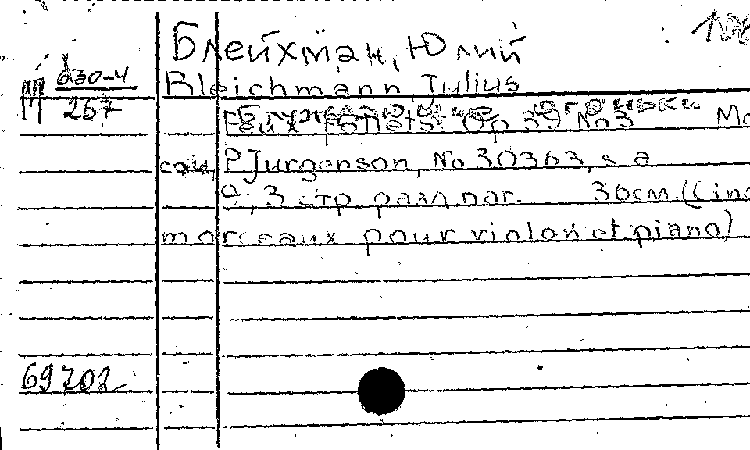 Блейхман, Юлий
Bleichmann Julius
М 630-4
267
Блуждающие огоньки
Feux follets. Op 39 No 3 Мо
сац, P Jurgenson, No 30363, s. a
9, 3 стр. разд. паг. 30см. (Cinq
morceaux pour violon et piano)
69202